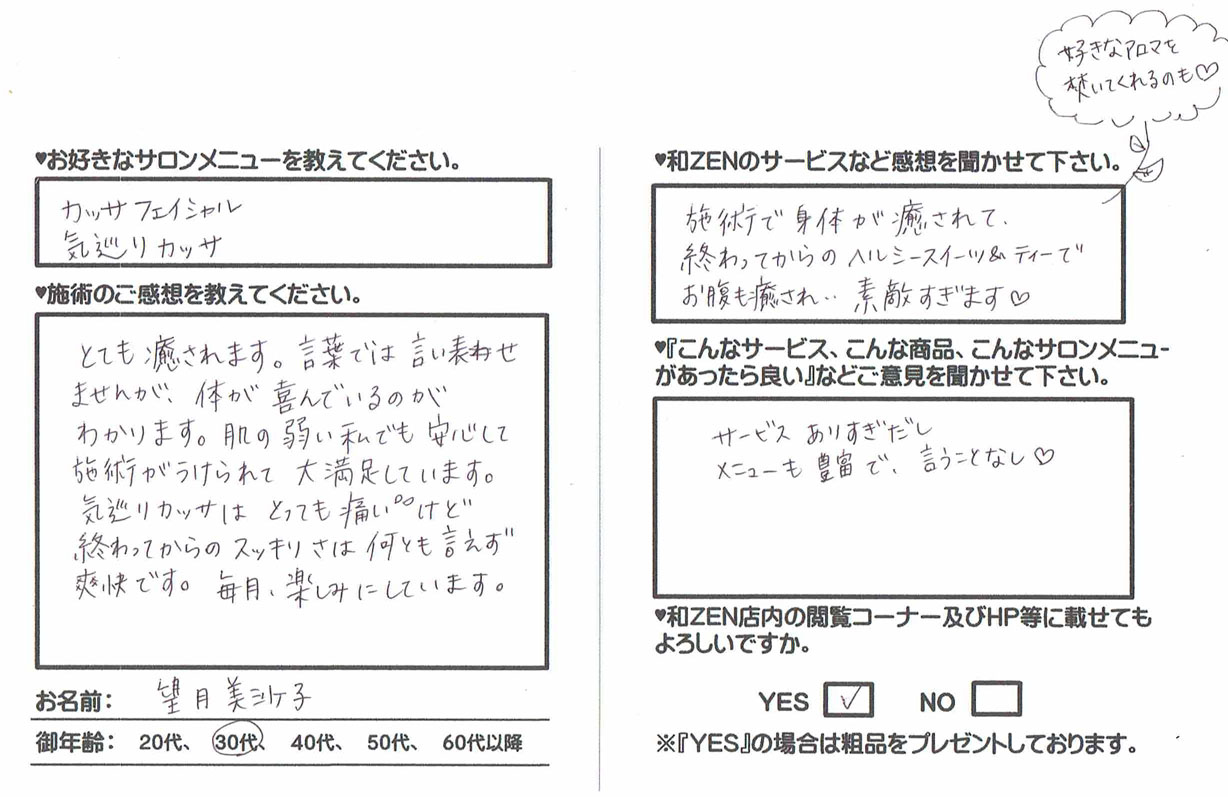 ♥お好きなサロンメニューを教えてください。
カッサフェイシャル
気巡りカッサ
♥施術のご感想を教えてください。
とても癒されます。言葉では言い表わせ
ませんが、体が喜んでいるのが
わかります。肌の弱い私でも安心して
施術がうけられて大満足しています。
気巡りカッサはとっても痛いけど
終わってからのスッキリさは何とも言えず
爽快です。毎月、楽しみにしています。
お名前: 望月美沙子
御年齢: 20代、 30代、 40代、 50代、 60代以降
好きなアロマを
焚いてくれるのも♡
♥和ZENのサービスなど感想を聞かせて下さい。
施術で身体が癒されて、
終わってからのヘルシースイーツ&ティーで
お腹も癒され‥素敵すぎます♡
♥『こんなサービス、こんな商品、こんなサロンメニュー
があったら良い』などご意見を聞かせて下さい。
サービスありすぎだし
メニューも豊富で、言うことなし♡
♥和ZEN店内の閲覧コーナー及びHP等に載せても
よろしいですか。
YES ✓ NO
※『YES』の場合は粗品をプレゼントしております。